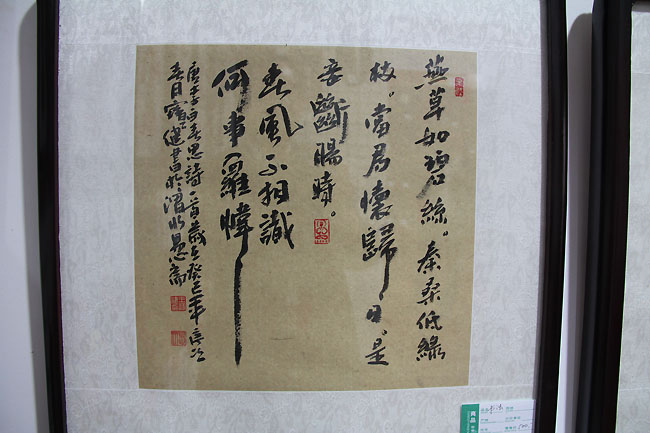 燕草如碧絲。秦桑低緑
枝。當君懷歸日。是
妾斷腸時。
春風不相識
何事羅幃
唐李白春思詩一首歲在癸巳年
春日健書於渭水愚齋
商品